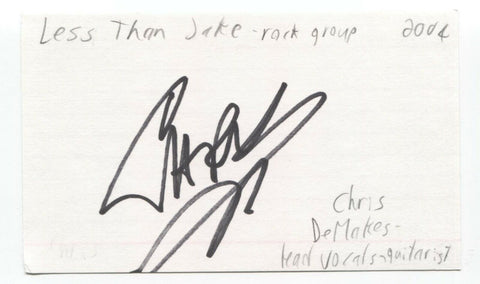 Less Than Jake - rock group 2004
Chris
DeMakes-
lead vocals-guitarist